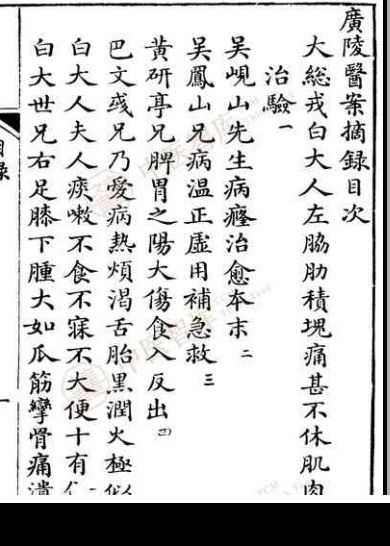 廣陵醫案摘錄目次
大總戎白大人左脇肋積塊痛甚不休肌肉
治驗一
吳峴山先生病癃治愈本末二
吳鳳山兄病溫正虛用補急救三
黃研亭兄脾胃之陽大傷食入反出四
巴文彧兄乃愛病熱煩渴舌胎黑潤火極似
白大人夫人痰嗽不食不寐不大便十有
白大世兄右足膝下腫大如瓜筋攣骨痛潰
目錄
一